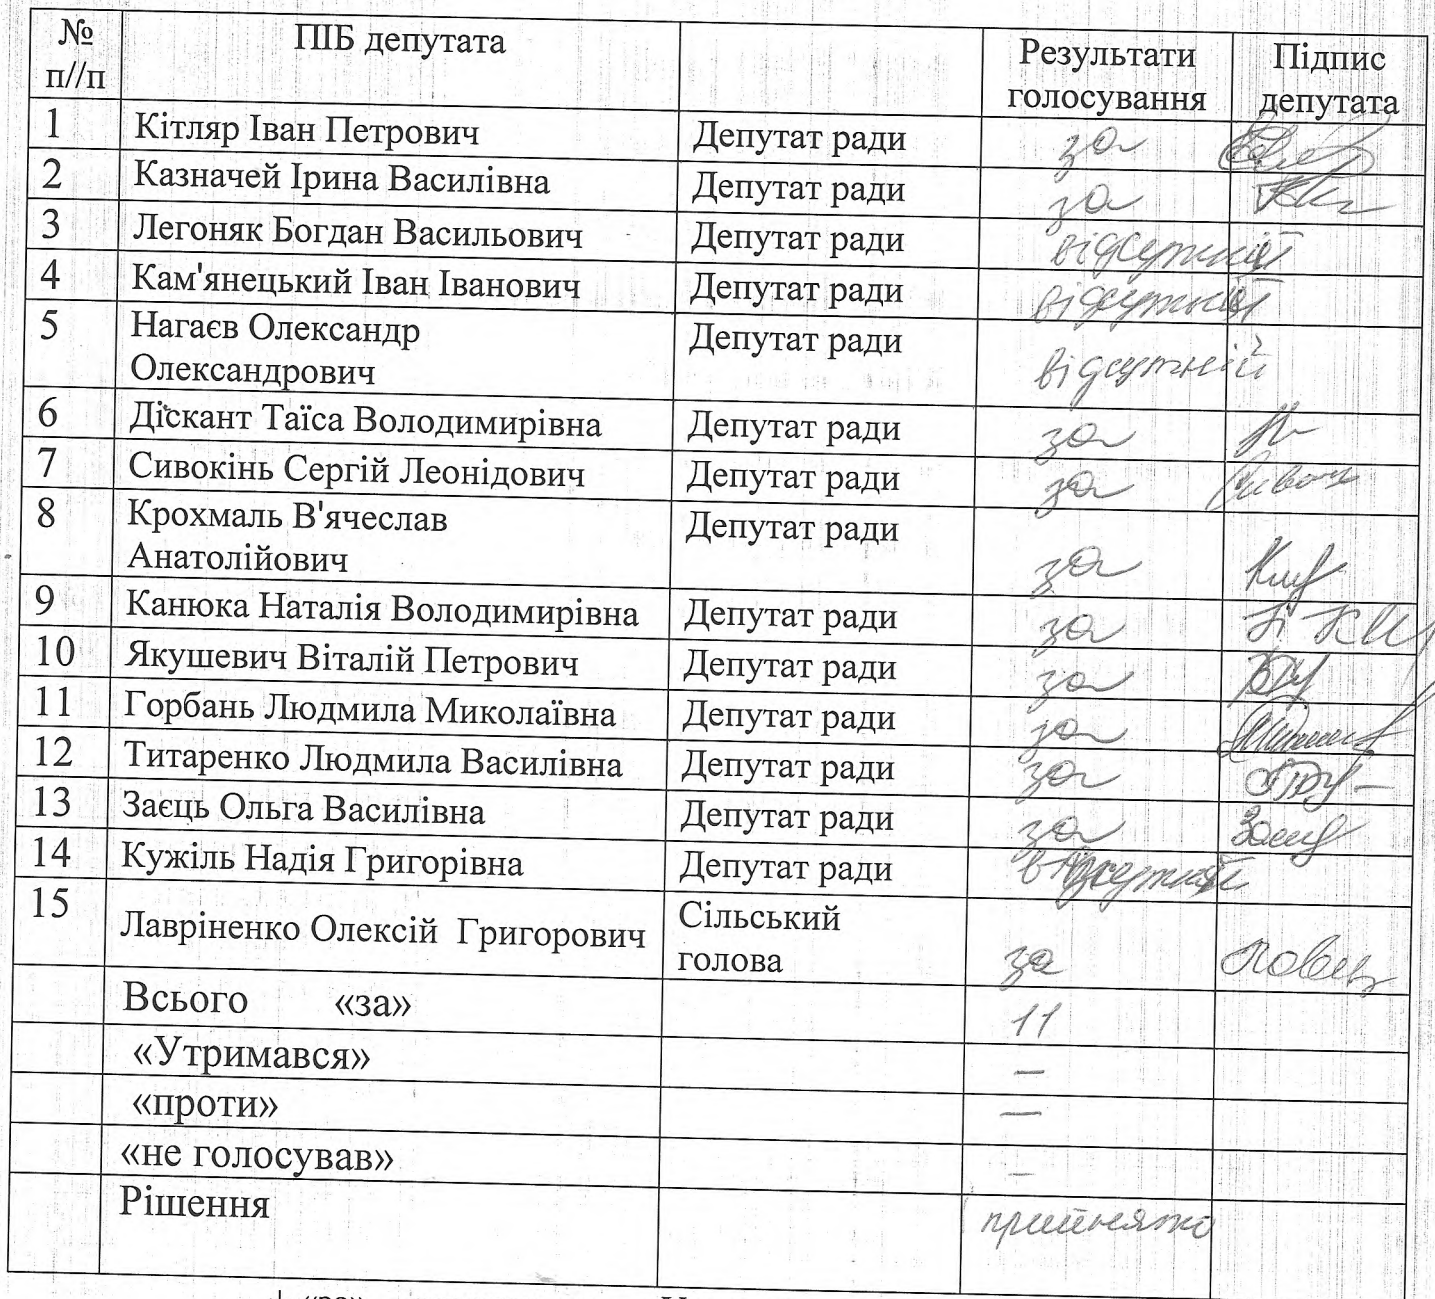 № п//п ПІБ депутата Результати голосування Підпис депутата
1 Кітляр Іван Петрович Депутат ради за
2 Казначей Ірина Василівна Депутат ради за
3 Легоняк Богдан Васильович Депутат ради відсутній
4 Кам'янецький Іван Іванович Депутат ради відсутній
5 Нагаєв Олександр Депутат ради
Олександрович відсутній
6 Діскант Таїса Володимирівна Депутат ради за
7 Сивокінь Сергій Леонідович Депутат ради за
8 Крохмаль В'ячеслав Депутат ради
Анатолійович за
9 Канюка Наталія Володимирівна Депутат ради за
10 Якушевич Віталій Петрович Депутат ради за
11 Горбань Людмила Миколаївна Депутат ради за
12 Титаренко Людмила Василівна Депутат ради за
13 Заєць Ольга Василівна Депутат ради за
14 Кужіль Надія Григорівна Депутат ради відсутній
15 Лавріненко Олексій Григорович Сільський голова за
Всього «за» 11
«Утримався» —
«проти» —
«не голосував» –
Рішення прийнято